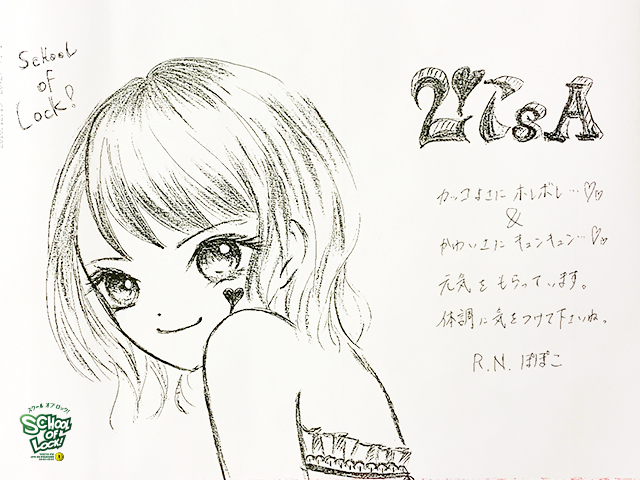 SCHOOL
of
LOCK!
LiSA
カッコよさに ホレボレ…♡♡
&
かわいさに キュンキュン…♡♡
元気を もらっています。
体調に気をつけて下さいね。
R.N. ぽぽこ
スクール オブ ロック!
SCHOOL
OF
LOCK!